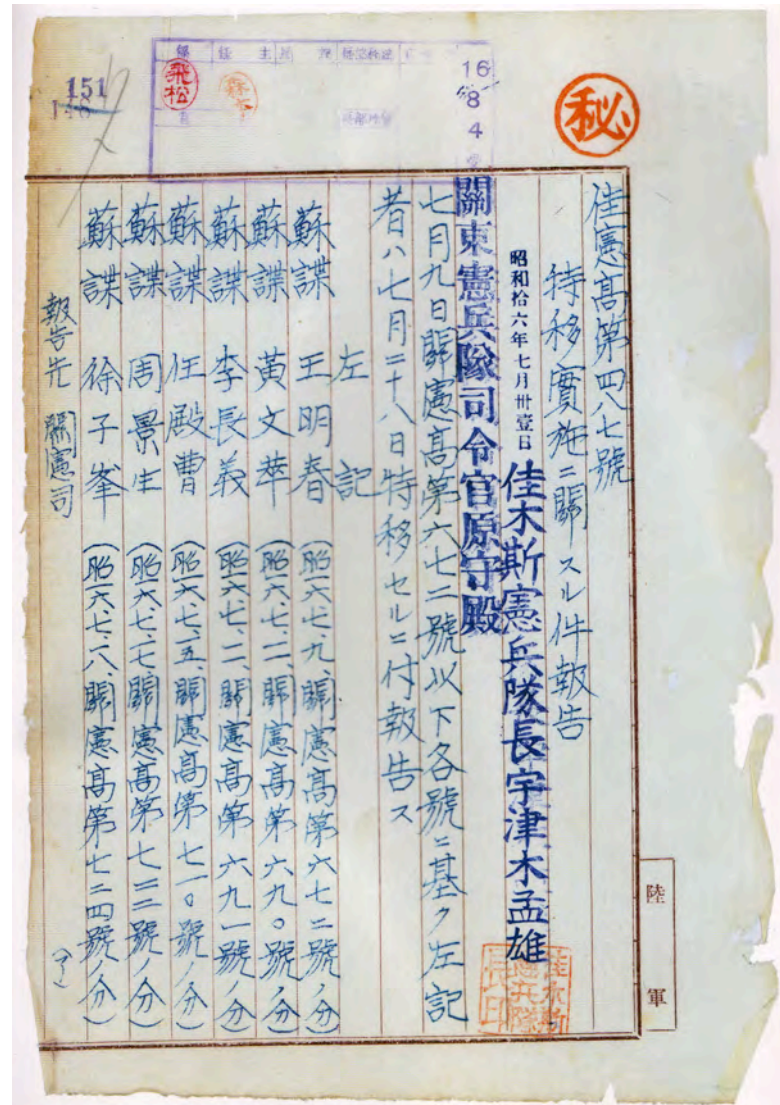 秘
佳憲高第四八七號
特移實施ニ關スル件報告
昭和拾六年七月卅壹日
佳木斯憲兵隊長宇津木孟雄
佳木斯憲兵隊長印
關東憲兵隊司令官原守殿
七月九日關憲高第六七二號以下各號ニ基ク左記
者ハ七月二十八日特移セルニ付報告ス
左記
蘇諜 王明春 (昭一六、七、九、關憲高第六七二號ノ分)
蘇諜 黃文華 (昭一六、七、二、關憲高第六九〇號ノ分)
蘇諜 李長義 (昭一六、七、二、關憲高第六九一號ノ分)
蘇諜 任殿曹 (昭一六、七、一五、關憲高第七一〇號ノ分)
蘇諜 周景生 (昭一六、七、一七、關憲高第七二二號ノ分)
蘇諜 徐子峯 (昭一六、七、一八、關憲高第七二四號ノ分)
報告先 關憲司
(了)
陸軍
16
8
4
主任
飛松
151